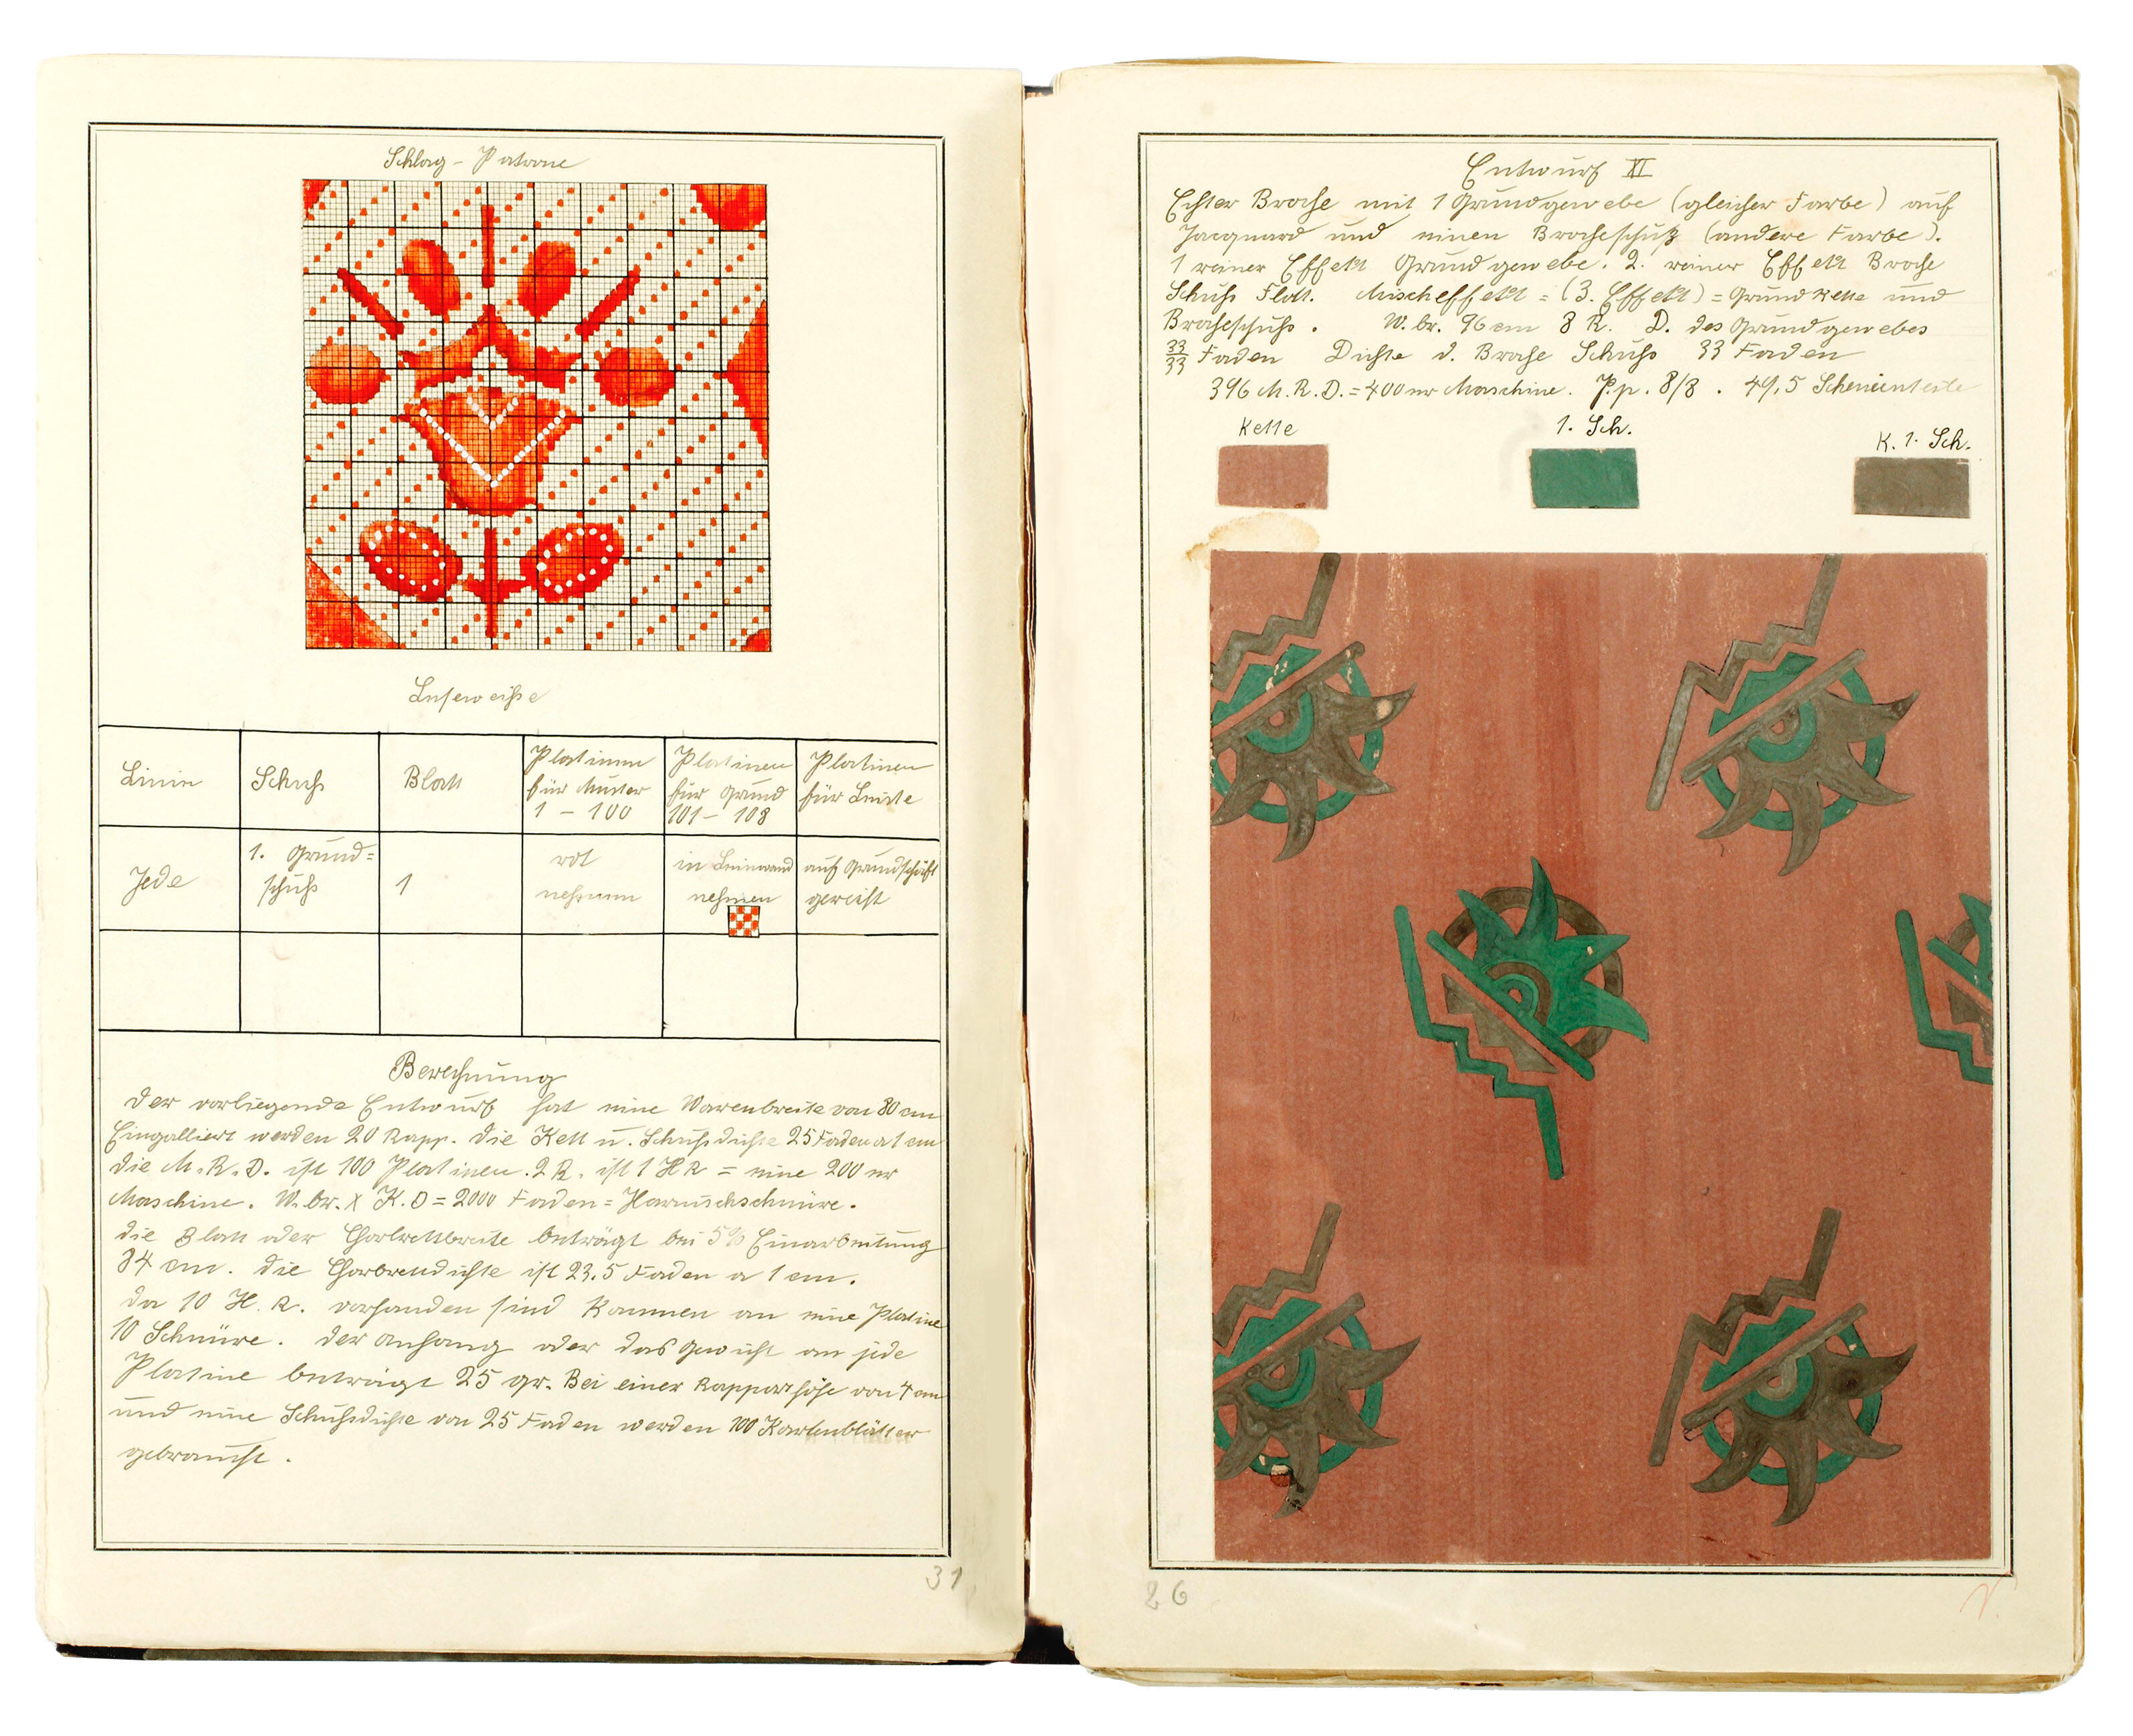 Schlag - Patrone
Leseweise
Linien
Schuß
Blatt
Platinen
für Muster
1 - 100
Platinen
für Grund
101 - 108
Platinen
für Leiste
Jede
1. Grund=
schuß
1
rot
nehmen
in Leinwand
nehmen
auf Grundschäft
gereiht
Berechnung
Der vorliegende Entwurf hat eine Warenbreite von 80 cm
Eingalliert werden 20 Rapp. Die Kett u. Schußdichte 25 Faden a 1 cm
Die M.R.D. ist 100 Platinen. 2 R. ist 1 HR = eine 200 er
Maschine. W.br. x K.D = 2000 Faden = Harnischschnüre.
Die Blatt oder beträgt bei 5% Einarbeitung
84 cm. Die ist 23.5 Faden a 1 cm.
Da 10 H.R. vorhanden sind kommen an eine Platine
10 Schnüre. Der Anhang oder das Gewicht an jede
Platine beträgt 25 gr. Bei einer Rapporthöhe von 4 cm
und eine Schußdichte von 25 Faden werden 100 Kartenblätter
gebraucht.
31
Entwurf XI
Echter Broche mit 1 Grundgewebe (gleicher Farbe) auf
Jacquard und einen Brocheschuß (andere Farbe).
1 reiner Effekt Grundgewebe. 2. reiner Effekt Broche
Schuß Flott. Mischeffekt = (3. Effekt) = Grundkette und
Brocheschuß. W.br. 96 cm 8 R. D. des Grundgewebes
33/33 Faden Dichte d. Broche Schuß 33 Faden
396 M.R.D. = 400 er Maschine. P.p. 8/8. 49,5
Kette
1. Sch.
K. 1. Sch.
26